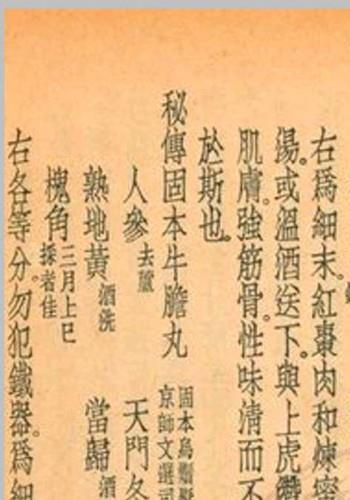 右爲細末。紅棗肉和煉蜜
湯。或溫酒送下。與上虎
肌膚。強筋骨。性味清而不
於斯也。
秘傳固本牛膽丸
固本烏鬚
京師文選司
人參 去蘆
天門冬
熟地黃 酒洗
當歸 酒
槐角 三月上巳採者佳
右各等分。勿犯鐵器。爲細